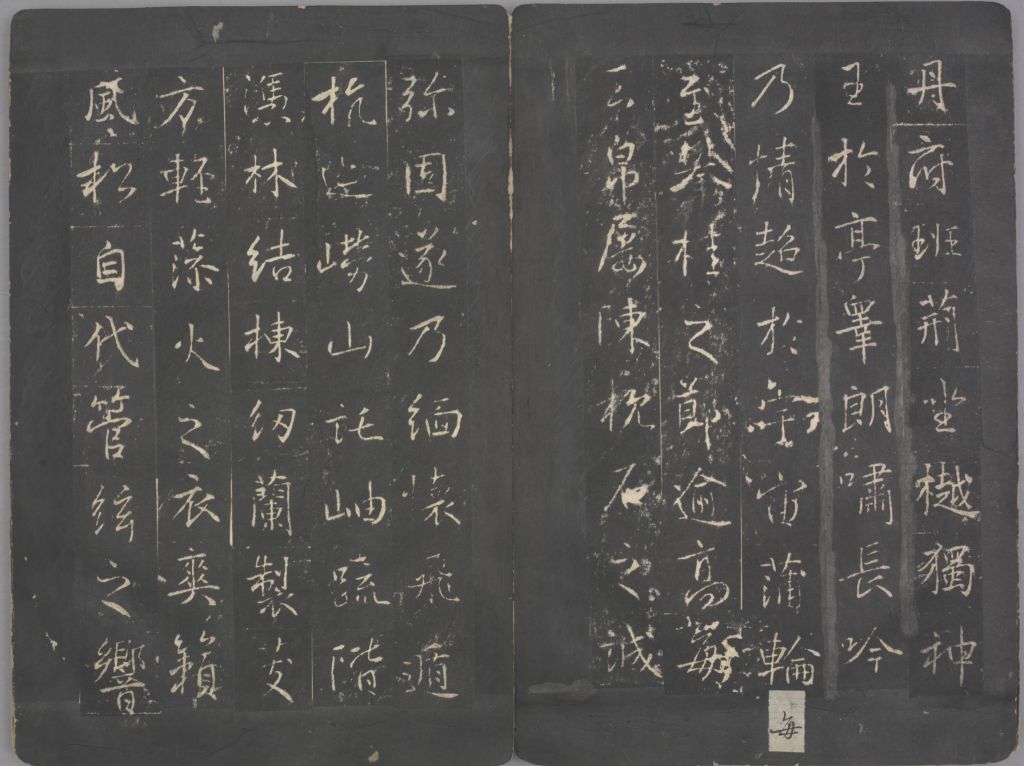 丹府班荊坐樾獨神
王於亭皋朗嘯長吟
乃情超於宇宙蒲輪
每
至攀桂之節逾高每
玉帛屢陳枕石之誠
弥固遂乃緬懷飛遁
抗迹嶗山託岫疏階
憑林結棟紉蘭製芰
方輕薜火之衣爽籟
風松自代管絃之響